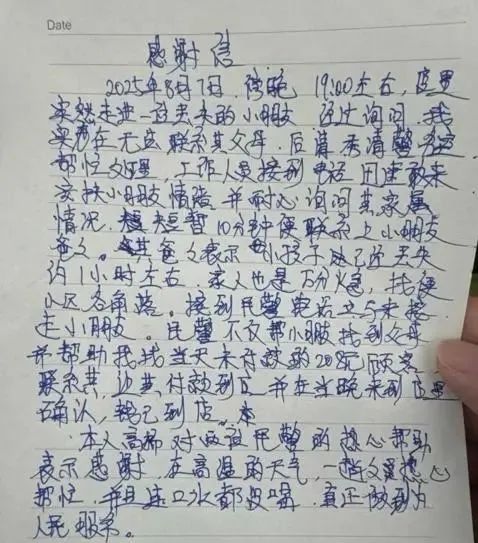 Date
感谢信
2025年8月7日 傍晚 19:00左右,店里
突然走进一位丢失的小朋友 经过询问,我
实在无法联系其父母,后
帮忙处理,工作人员接到电话 迅速
安抚小朋友情绪 并耐心询问其家属
情况,短短暂10分钟便联系上小朋友
爸父。其爸父表示 小孩子
约1小时左右 家人也是万分火急,找便
小区各角落。接到民警电话立马来接
走小朋友。民警不仅帮小朋友找到父母
并帮助我找当天未付款的 顾客
联系其,让其付款到 并在当晚来到店里
确认,钱已到店。
本人高 对 民警的热心帮助
表示感谢,在高温的天气,一 热心
帮忙,并且连口水都没喝,真正做到为
人民服务。